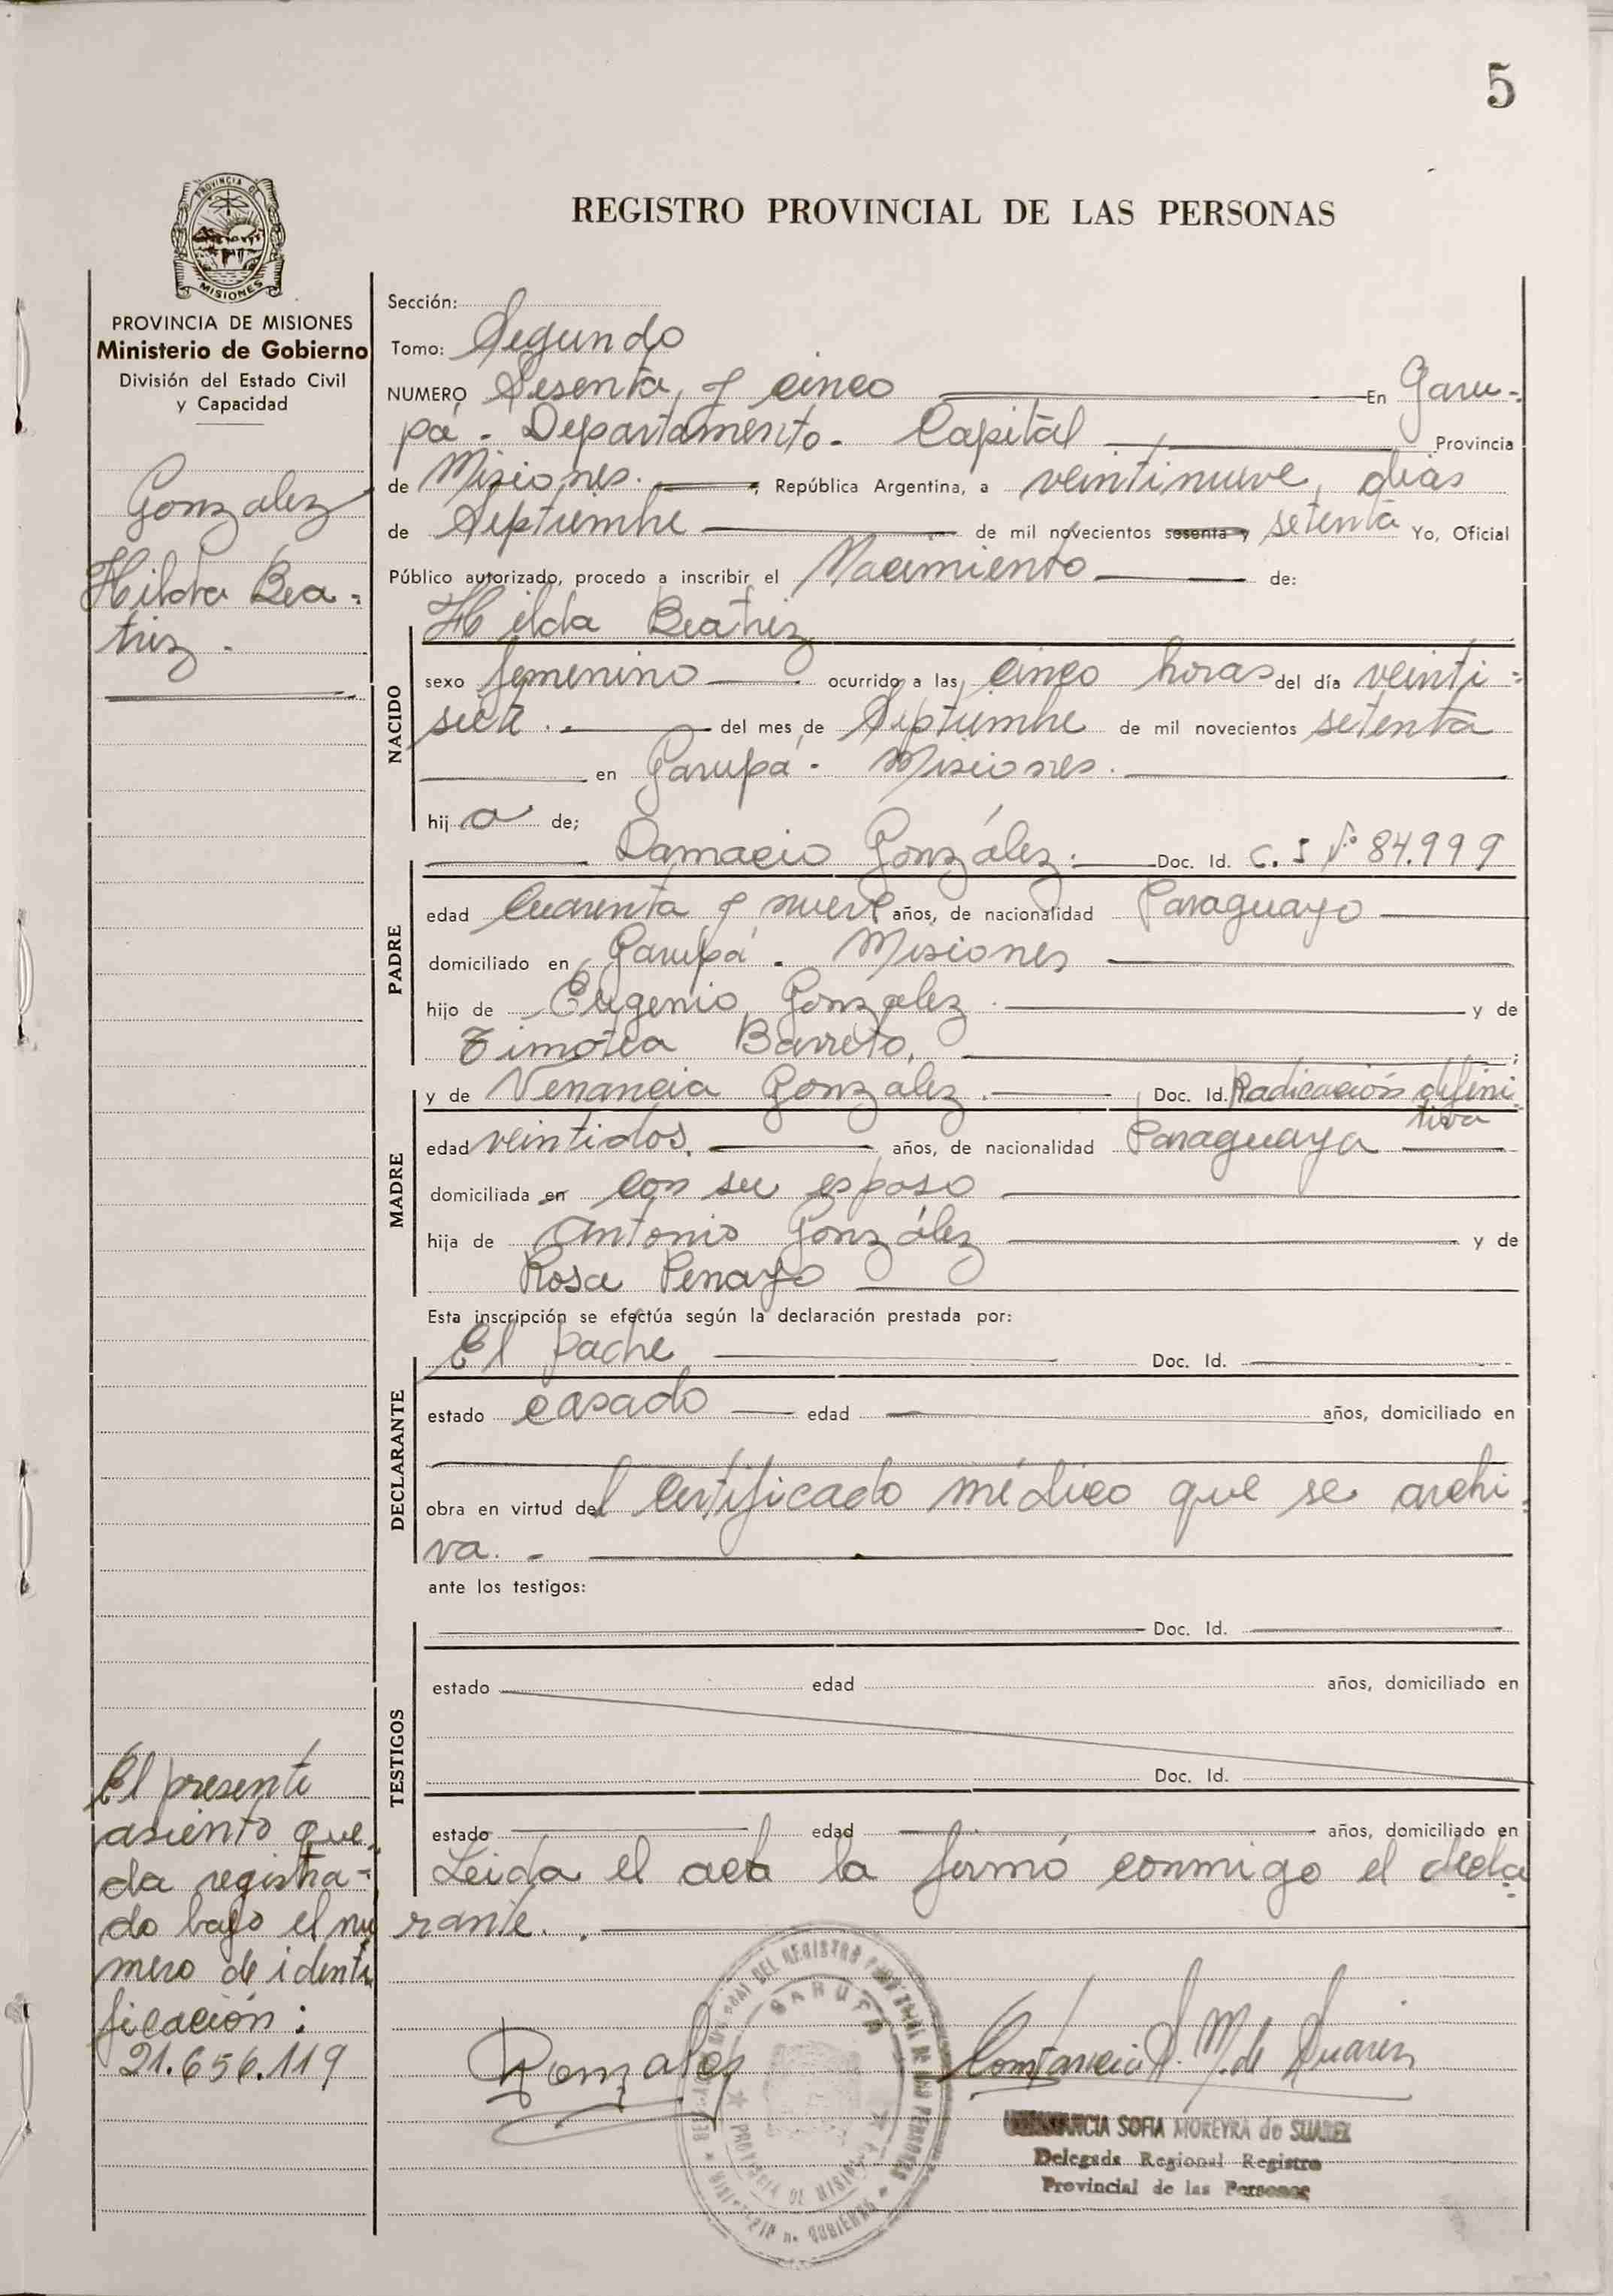 5
PROVINCIA DE
MISIONES
REGISTRO PROVINCIAL DE LAS PERSONAS
PROVINCIA DE MISIONES
Ministerio de Gobierno
División del Estado Civil
y Capacidad
Gonzalez
Hilda Bea-
triz -
Sección:
Tomo: Segundo
NUMERO Sesenta y cinco En Garu-
pá - Departamento - Capital Provincia
de Misiones. República Argentina, a veintinueve, dias
de Septiembre de mil novecientos sesenta y setenta Yo, Oficial
Público autorizado, procedo a inscribir el Nacimiento de:
Hilda Beatriz
NACIDO
sexo femenino ocurrido a las cinco horas del día veinti-
siete. del mes de Septiembre de mil novecientos setenta
en Garupá - Misiones.
hij a de;
Damacio González. Doc. Id. C. I Nº 84.999
PADRE
edad Cuarenta y nueve años, de nacionalidad Paraguayo
domiciliado en Garupá - Misiones
hijo de Eugenio González y de
Timotea Barreto,
y de Venancia González. Doc. Id. Radicación defini-
tiva
MADRE
edad veintidos, años, de nacionalidad Paraguaya
domiciliada en con su esposo
hija de Antonio González y de
Rosa Penayo
Esta inscripción se efectúa según la declaración prestada por:
El padre Doc. Id.
DECLARANTE
estado casado edad años, domiciliado en
obra en virtud del Certificado médico que se archi-
va. -
ante los testigos:
Doc. Id.
TESTIGOS
estado edad años, domiciliado en
Doc. Id.
estado edad años, domiciliado en
Leida el acta la firmó conmigo el decla-
rante.
El presente
asiento que-
da registra-
do bajo el nú
mero de identi
ficación:
21.656.119
GARUPA
PROVINCIA DE MISIONES
Gonzalez
Constancia S. M. de Suarez
CONSTANCIA SOFIA MOREYRA de SUAREZ
Delegada Regional Registro
Provincial de las Personas